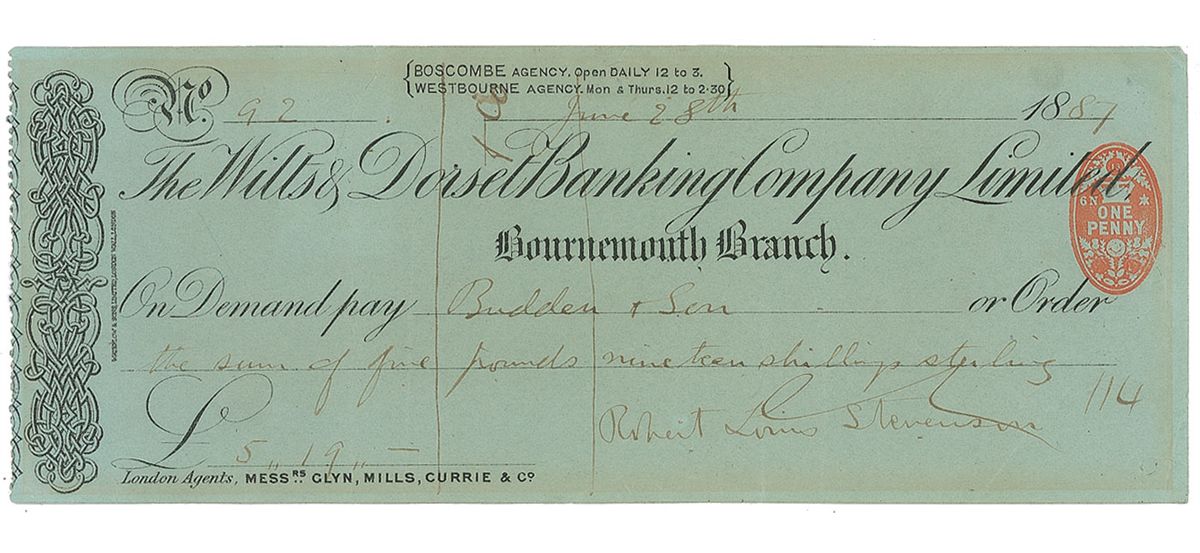 BOSCOMBE AGENCY. Open DAILY 12 to 3.
WESTBOURNE AGENCY. Mon & Thurs. 12 to 2·30
No. 92. June 28th 1887
The Wilts & Dorset Banking Company Limited,
6 N
ONE
PENNY
Bournemouth Branch.
On Demand pay Budden & Son or Order
the sum of five pounds nineteen shillings sterling
Robert Louis Stevenson
114
£ 5 ,, 19 ,, —
London Agents, MESSRS GLYN, MILLS, CURRIE & Co